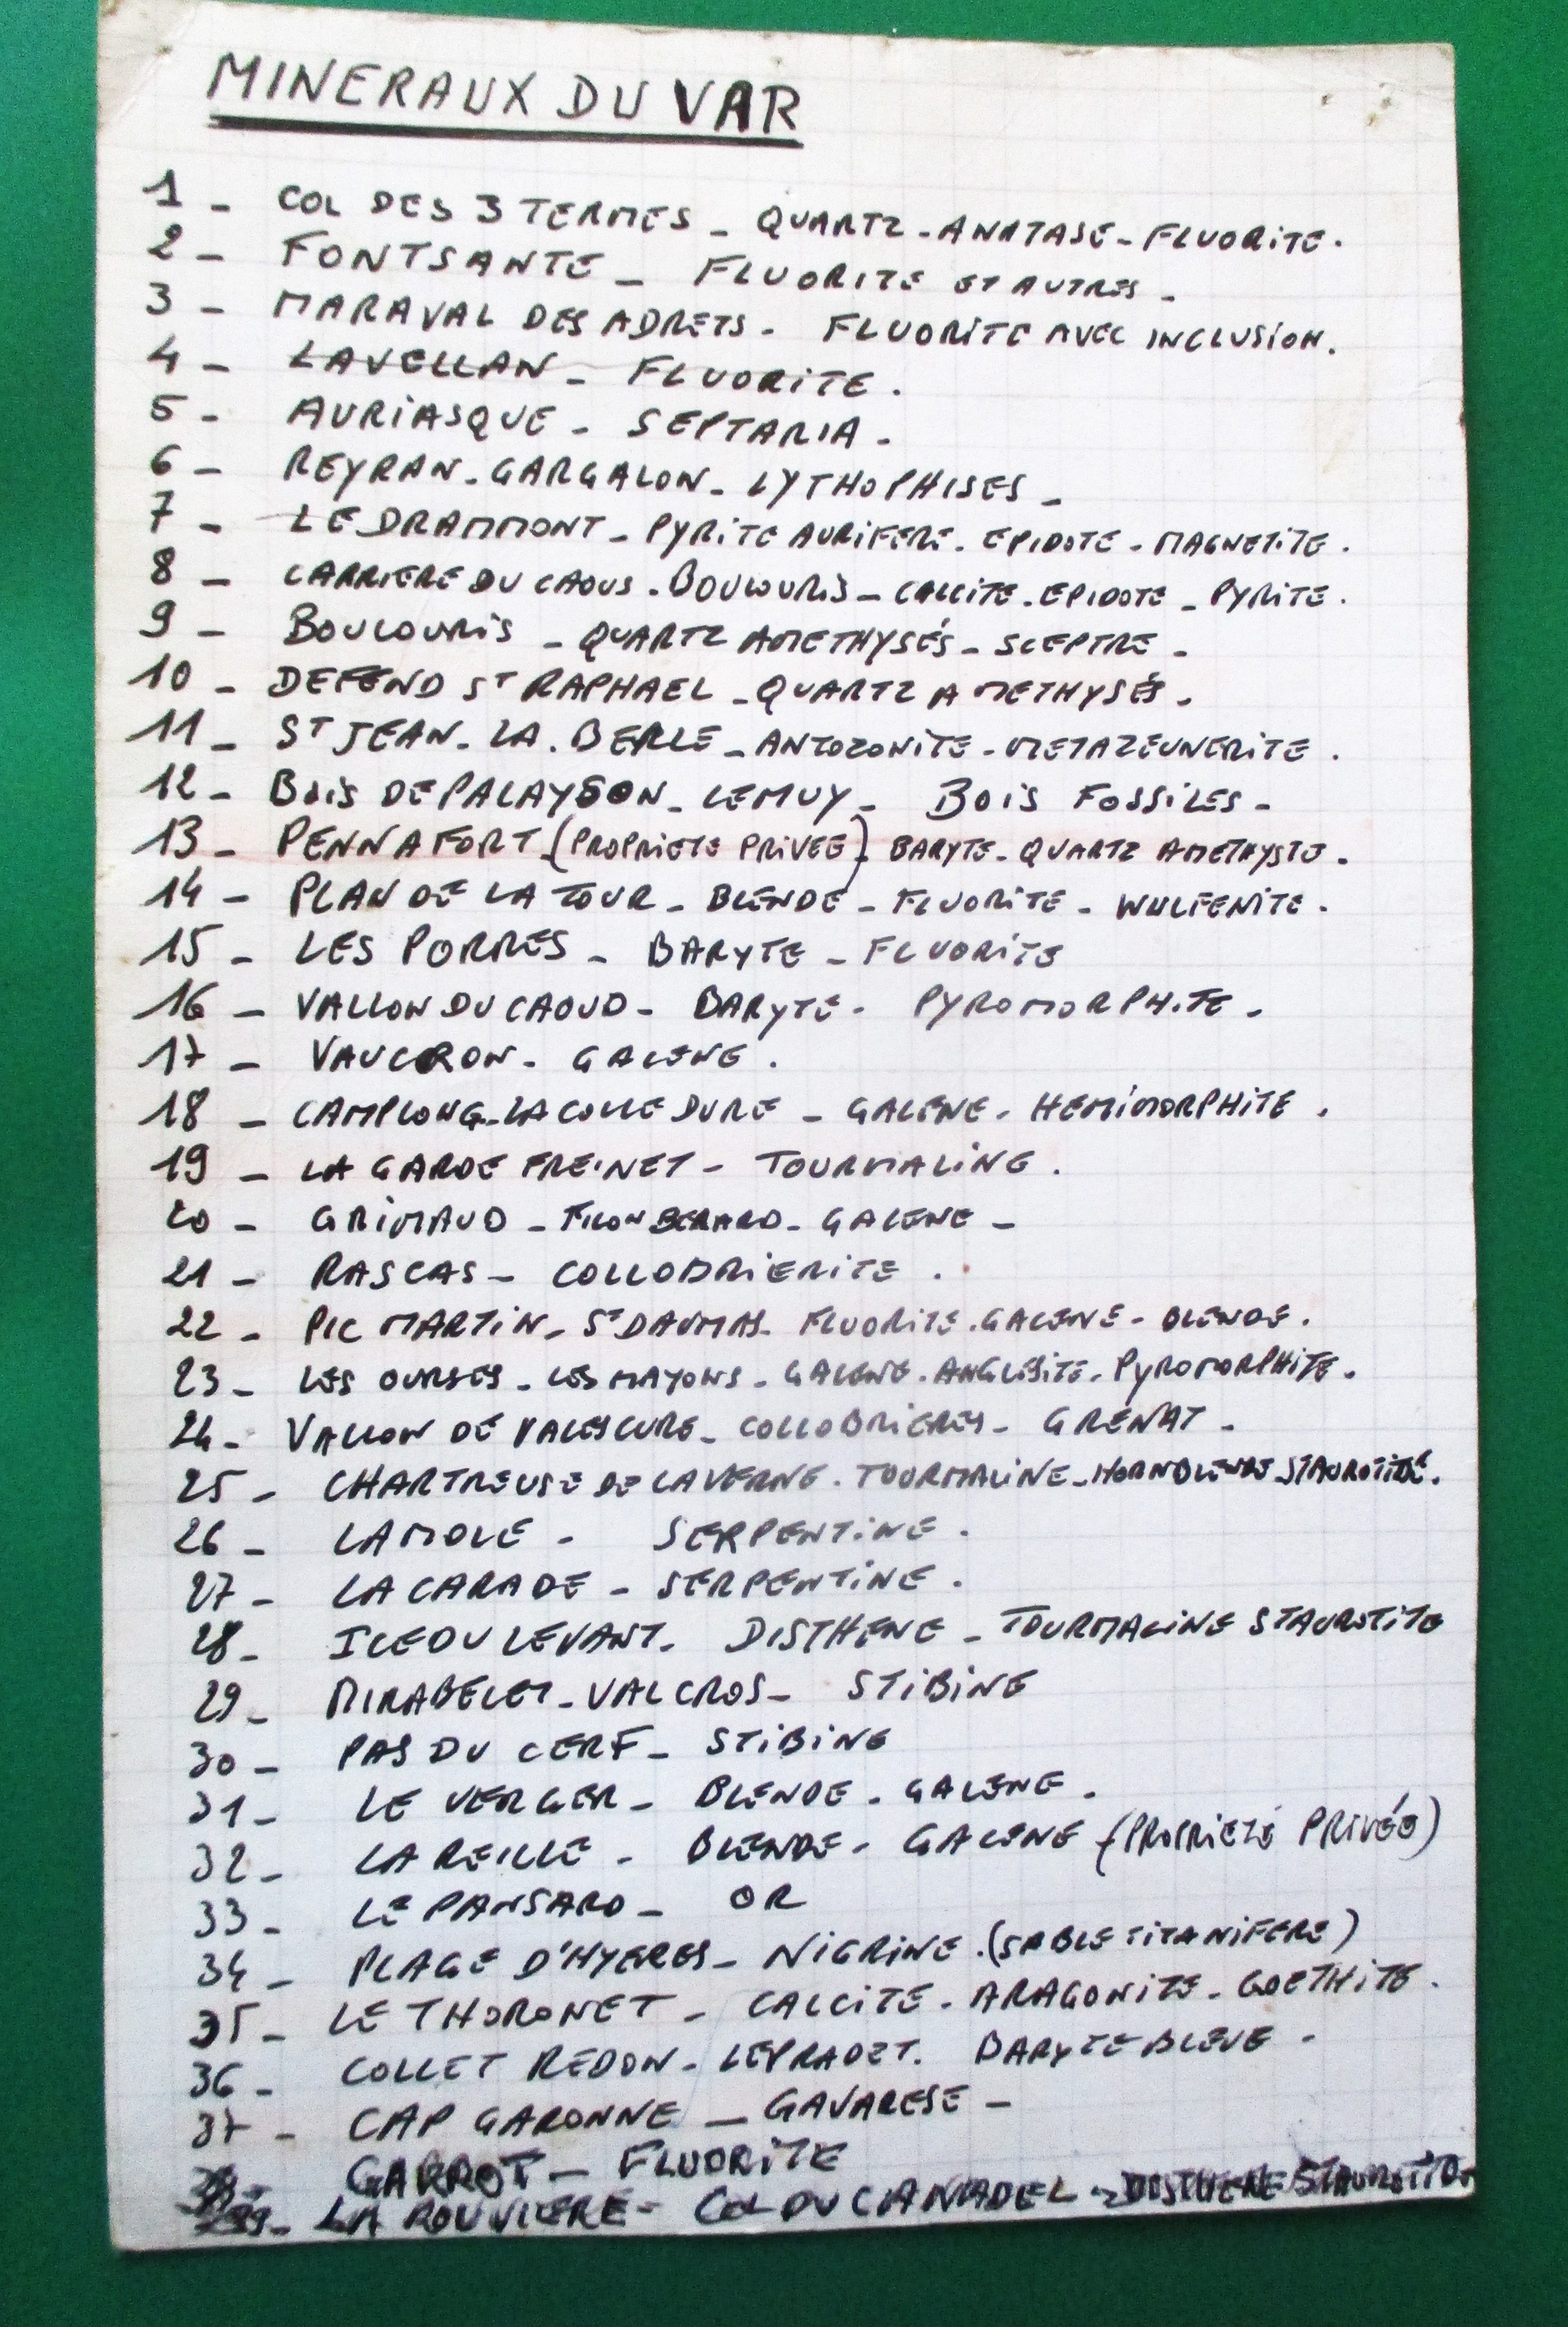 MINERAUX DU VAR
1 - COL DES 3 TERMES - QUARTZ - ANATASE - FLUORITE.
2 - FONTSANTE - FLUORITE ET AUTRES -
3 - MARAVAL DES ADRETS - FLUORITE AVEC INCLUSION.
4 - LAVELLAN - FLUORITE.
5 - AURIASQUE - SEPTARIA -
6 - REYRAN - GARGALON - LYTHOPHISES -
7 - LE DRAMMONT - PYRITE AURIFERE. EPIDOTE - MAGNETITE.
8 - CARRIERE DU CAOUS - BOULOURIS - CALCITE. EPIDOTE - PYRITE.
9 - BOULOURIS - QUARTZ AMETHYSÉS - SCEPTRE -
10 - DEFEND ST RAPHAEL - QUARTZ AMETHYSÉS.
11 - ST JEAN - LA. BERLE - ANTOZONITE - METAZEUNERITE.
12 - BOIS DE PALAYSON - LE MUY - BOIS FOSSILES -
13 - PENNAFORT (PROPRIETE PRIVEE) - BARYTE - QUARTZ AMETHYSTE.
14 - PLAN DE LA TOUR - BLENDE - FLUORITE - WULFENITE.
15 - LES PORRES - BARYTE - FLUORITE
16 - VALLON DU CAOUD - BARYTE - PYROMORPHITE.
17 - VAUCRON - GALENE.
18 - CAMPLONG - LA COLLE DURE - GALENE - HEMIMORPHITE.
19 - LA GARDE FREINET - TOURMALINE.
20 - GRIMAUD - FILON BERARD - GALENE -
21 - RASCAS - COLLOBRIERITE.
22 - PIC MARTIN - ST DAUMAS - FLUORITE. GALENE - BLENDE.
23 - LES OURSES - LES MAYONS - GALENE. ANGLESITE. PYROMORPHITE.
24 - VALLON DE VALESCURE - COLLOBRIERES - GRENAT -
25 - CHARTREUSE DE LA VERNE. TOURMALINE - HORNBLENDE - STAUROTIDE.
26 - LA MOLE - SERPENTINE.
27 - LA CARADE - SERPENTINE.
28 - ILE DU LEVANT - DISTHENE - TOURMALINE STAUROTITE
29 - MIRABELET - VALCROS - STIBINE
30 - PAS DU CERF - STIBINE
31 - LE VERGER - BLENDE - GALENE.
32 - LA REILLE - BLENDE - GALENE (PROPRIETÉ PRIVÉE)
33 - LE PANSARD - OR
34 - PLAGE D'HYERES - NIGRINE. (SABLE TITANIFERE)
35 - LE THORONET - CALCITE - ARAGONITE - GOETHITE.
36 - COLLET REDON - LE PRADET. BARYTE BLEUE -
37 - CAP GARONNE - GAVARESE -
38 - GARROT - FLUORITE
39 - LA ROUVIERE - COL DU CANADEL - DISTHENE STAUROTIDE